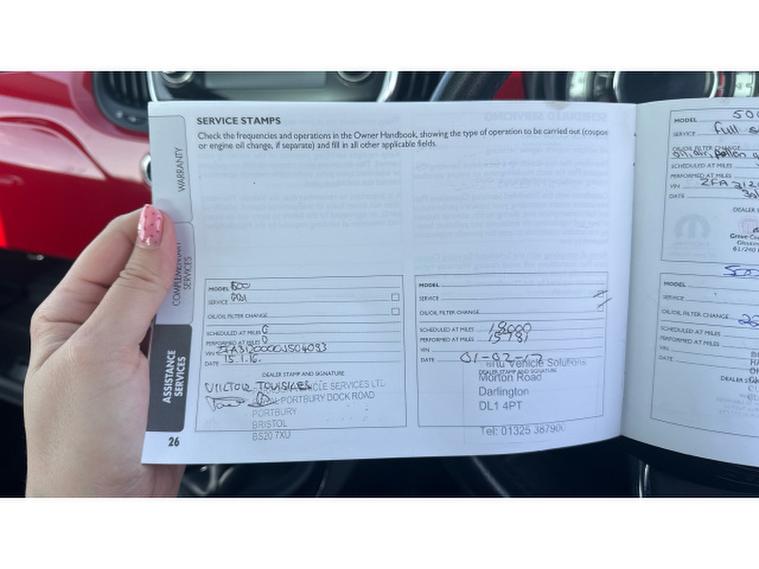 SERVICE STAMPS
Check the frequencies and operations in the Owner Handbook, showing the type of operation to be carried out (coupon
or engine oil change, if separate) and fill in all other applicable fields.
WARRANTY
COMPLEMENTARY
SERVICES
ASSISTANCE
SERVICES
26
MODEL 500
SERVICE PDI
OIL/OIL FILTER CHANGE
SCHEDULED AT MILES
PERFORMED AT MILES
VIN
DATE 15.1.16.
DEALER STAMP AND SIGNATURE
VEHICLE SERVICES LTD
PORTBURY DOCK ROAD
PORTBURY
BRISTOL
BS20 7XU
MODEL
SERVICE
OIL/OIL FILTER CHANGE
SCHEDULED AT MILES 18000
PERFORMED AT MILES 15781
VIN
DATE 01-02-17
DEALER STAMP AND SIGNATURE
Vehicle Solutions
Morton Road
Darlington
DL1 4PT
Tel: 01325 387900
MODEL 500
SERVICE Full
OIL/OIL FILTER CHANGE
oil, air, pollen
SCHEDULED AT MILES
PERFORMED AT MILES
VIN ZFA 312
DATE
DEALER
MODEL 500
SERVICE
OIL/OIL FILTER CHANGE
SCHEDULED AT MILES
PERFORMED AT MILES
VIN
DATE
DEALER